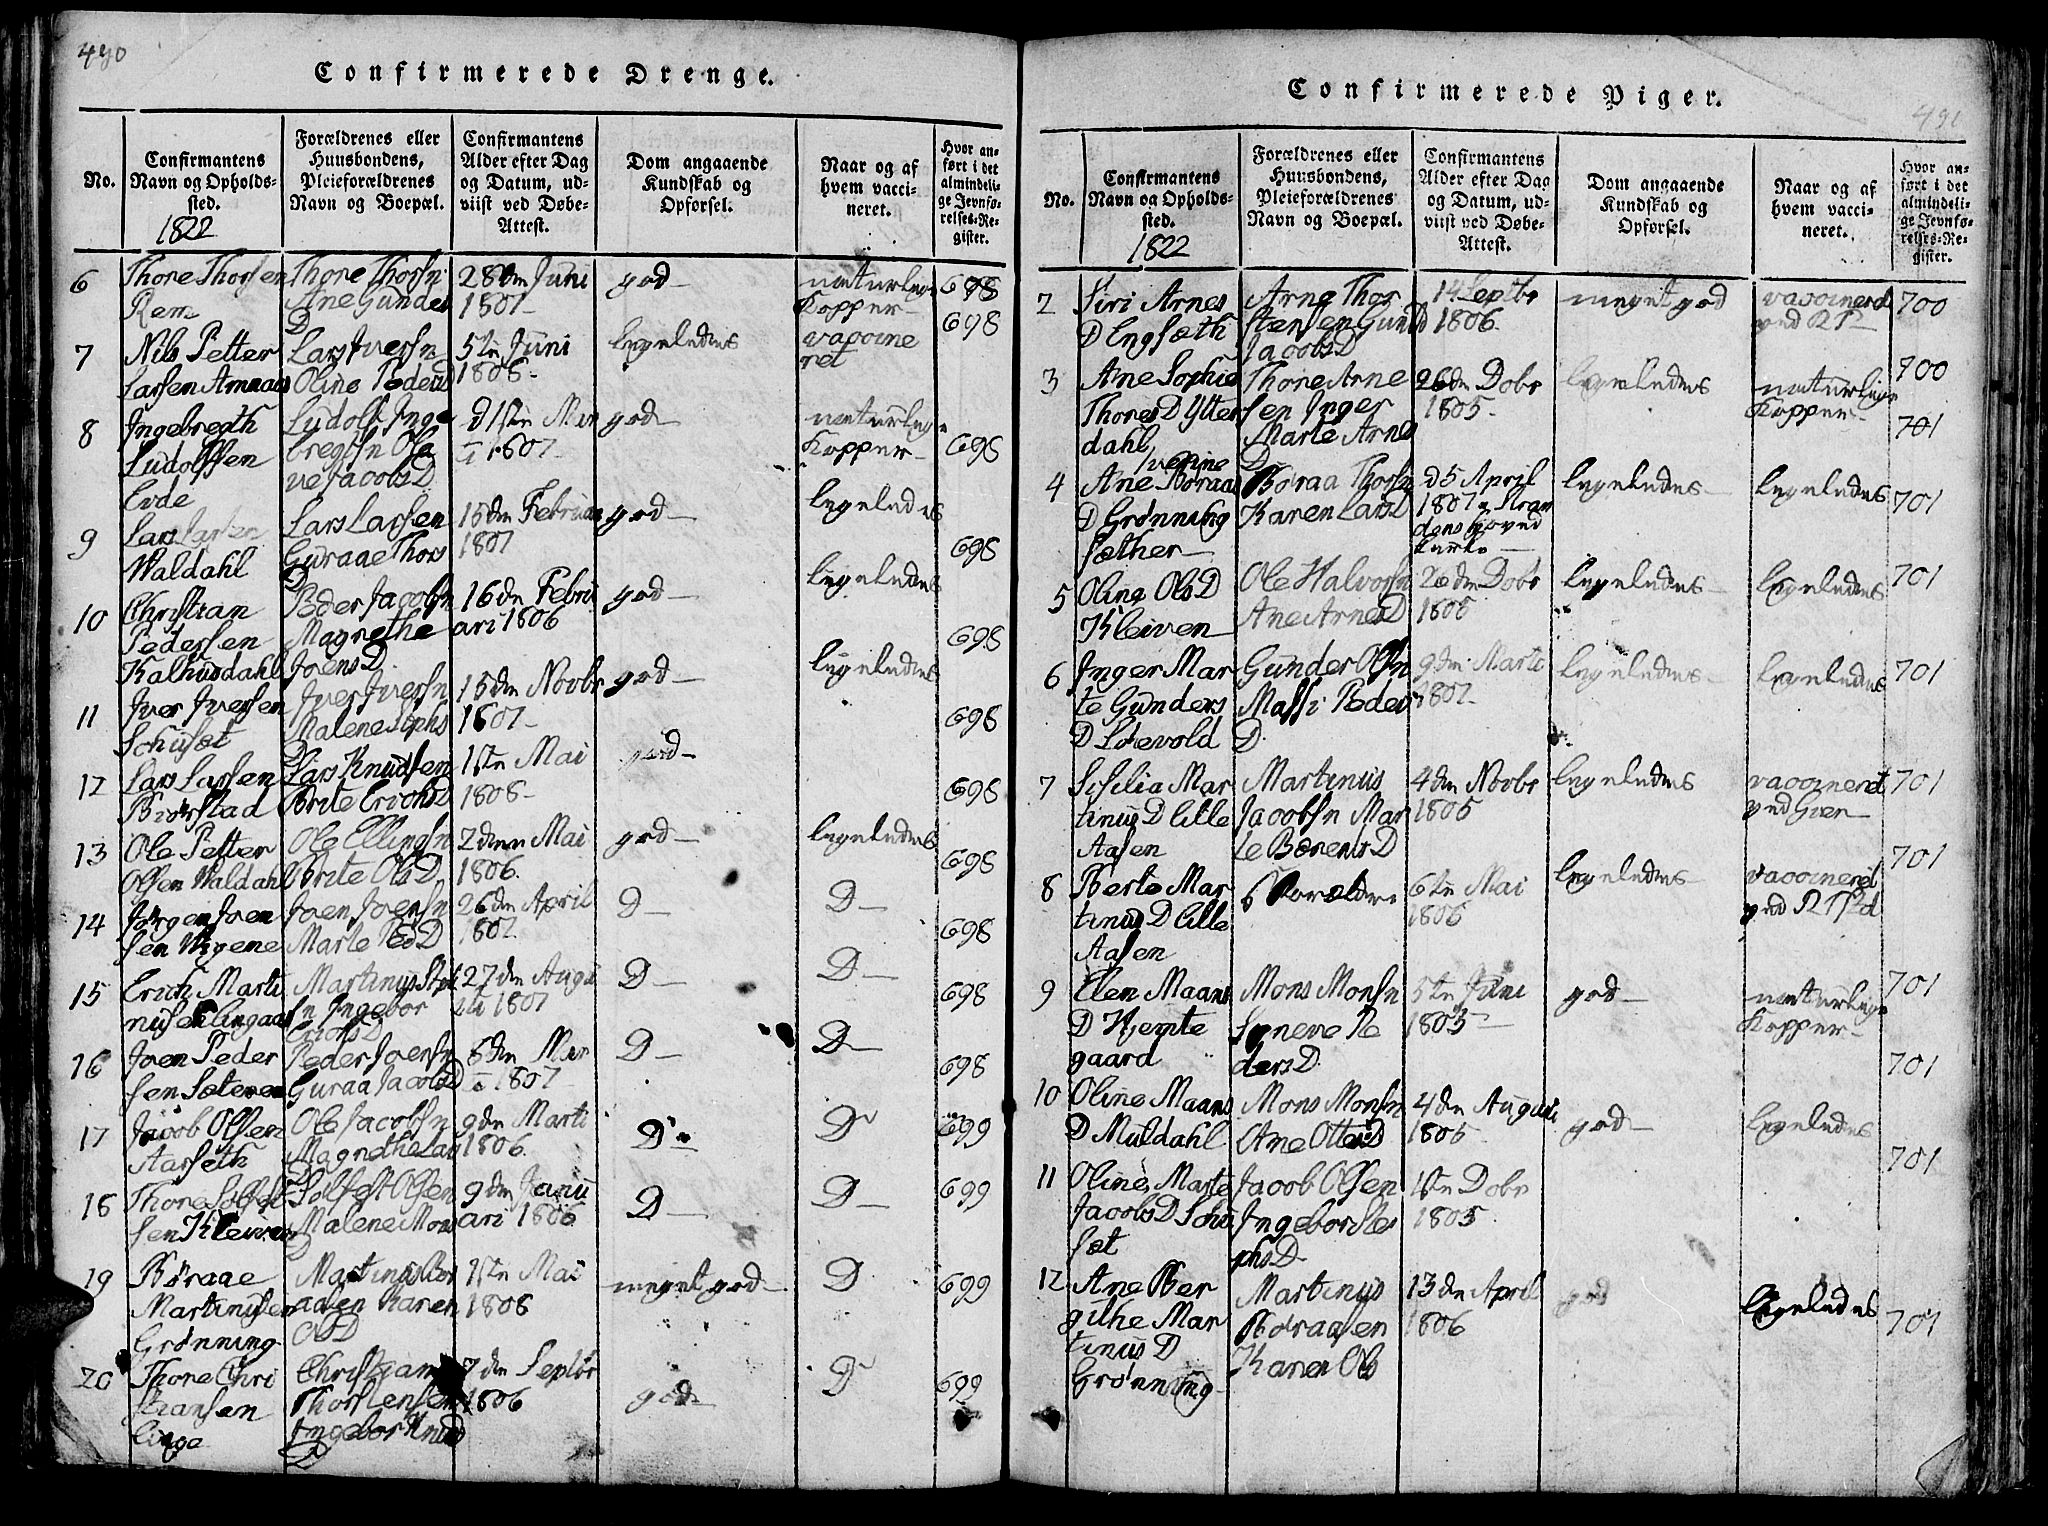 490
Confirmerede Drenge.
No.
Confirmantens
Navn og Opholds-
sted.
1822
Forældrenes eller
Huusbondens,
Pleieforældrenes
Navn og Boepæl.
Confirmantens
Alder efter Dag
og Datum, ud-
viist ved Døbe-
Attest.
Dom angaaende
Kundskab og
Opførsel.
Naar og af
hvem vacci-
neret.
Hvor an-
ført i det
almindeli-
ge Jevnfø-
relses-Re-
gister.
6
Thore Thorsen
Rem
Thore Thorsn
Ane Gundes
D
28de Juni
1807
god
naturlige
Kopper
698
698
7
Nils Petter
Larsen
Lars Iversn
Oline Peders D
5te Juni
1808
ligeledes
vaccine
ret
8
Ingebregth
Ludolfsen
Eide
Ludolf Inge
bregtsn Ola
ve Jacobs D
1807
god
naturlige
Kopper
698
9
Lars Larsen
Waldahl
Lars Larsen
Guraae Thors
D
15de Februar
1807
god
ligeledes
698
10
Christian
Pedersen
Kalhusdahl
Peder Jacobsn
Magrethe
Joens D
16de Febru
ari 1806
god
ligeledes
698
11
Iver Iversen
Schuset
Iver Iversn
Malene Stephs
D
15de Novbr
1807
god
ligeledes
698
12
Lars Larsen
Biørstad
Lars Knudsen
Brite Erichs D
1ste Mai
1808
god
698
13
Ole Petter
Olsen Waldahl
Ole Ellingsn
Brite Ols D
2den Mai
1806
god
ligeledes
698
14
Jørgen Joen
sen Wigene
Joen Joensn
Marte Ped D
26de April
1807
D
D
698
15
Erich Marti
nusen
Martinus
sn Ingebor
Erichs D
27de Augu
sti 1807
D
D
698
16
Joen Peder
sen Sæteren
Peder Joensn
Guraa Jacobs D
6de
1807
D
D
698
17
Jacob Olsen
Aarseth
Ole Jacobsn
Magrethe Lars
D
9de Marti
1806
D
D
699
18
Thore Solfest
sen Kleiven
Solfest Olsen
Malene Mons
D
9de Janu
ari 1806
D
D
699
19
Børaae
Martinusen
Grønning
Martinus Bør
aasen Karen
Ols D
1ste Mai
1808
meget god
D
699
20
Thore Chri
stiansen
Linge
Christian
Thorstensen
Ingebor Knud
D
7de Septbr
1806
god
D
699
491
Confirmerede Piger.
No.
Confirmantens
Navn og Opholds-
sted.
1822
Forældrenes eller
Huusbondens,
Pleieforældrenes
Navn og Boepæl.
Confirmantens
Alder efter Dag
og Datum, ud-
viist ved Døbe-
Attest.
Dom angaaende
Kundskab og
Opførsel.
Naar og af
hvem vacci-
neret.
Hvor an-
ført i det
almindeli-
ge Jevnfø-
relses-Re-
gister.
2
Siri Arnes
D Engsæth
Arne Thor
stensen Gunild
Jacobs D
14 Septbr
1806
meget god
vaccinerd
ved
700
3
Ane Sophie
Thores D Ytter
dahl
Thore Arne
sen Inger
Marte Arnes
D
26de Dcbr
1805
ligeledes
naturlige
Kopper
700
701
4
Ane Børaas
D Grønning
sæther
Børaa Thorsn
Karen Lars D
5 April
1807
Stran
dens hoved
kirke
ligeledes
ligeledes
701
5
Oline Ols D
Kleiven
Ole Halvorsn
Ane Arnes D
26de Dcbr
1805
ligeledes
ligeledes
701
6
Inger Mar
te Gunders
D Løevold
Gunder Olsn
Massi Peder
D
9de Marti
1807
ligeledes
ligeledes
701
7
Sisilia Mar
tinus D Lille
Aasen
Martinus
Jacobsn Mar
te Bærents D
4de Novbr
1805
ligeledes
vaccineret
ved Gien
701
8
Berte Mar
tinus D Lille
Aasen
Forældre
6te Mai
1806
ligeledes
vaccineret
ved
701
9
Elen Maans
D Hjemte
gaard
Mons Monsn
Synneve Pe
ders D
5te Juni
1805
god
naturlige
Kopper
701
10
Oline Maans
D Muldahl
Mons Monsn
Ane Ottes D
4de Augusti
1805
god
ligeledes
701
11
Oline Marte
Jacobs D Schu
sæt
Jacob Olsen
Ingebor Ste
phs D
1ste Dcbr
1805
701
12
Ane Ber
githe Mar
tinus D
Grønning
Martinus
Børaasen
Karen Ols
13de April
1806
god
ligeledes
701